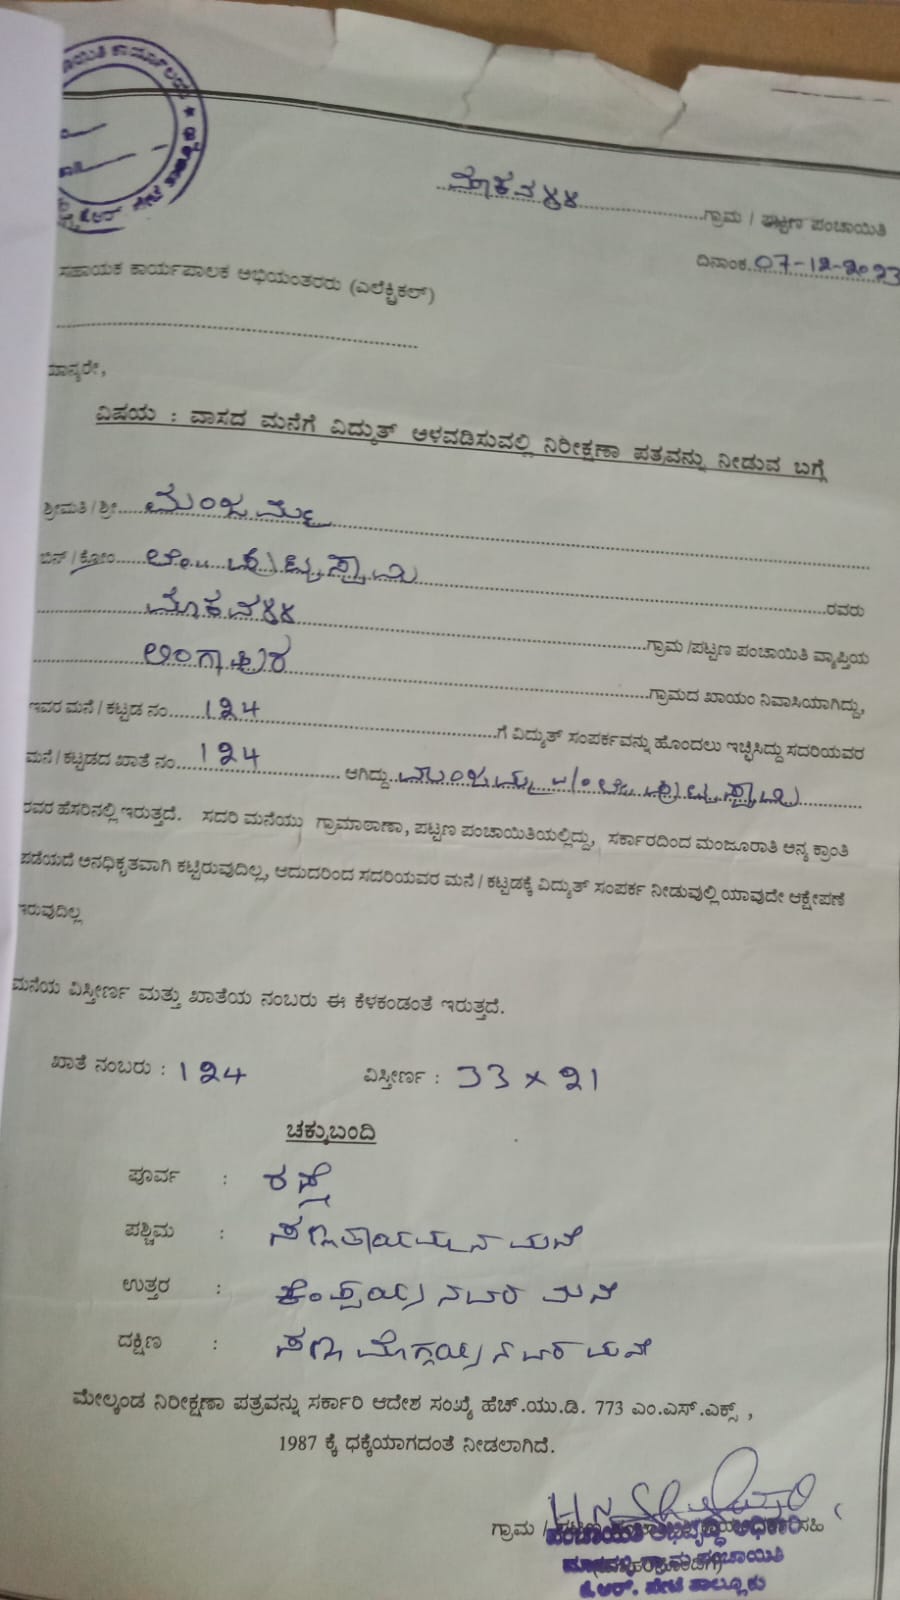 ಮಾಕವಳ್ಳಿ ಗ್ರಾಮ / ಪಟ್ಟಣ ಪಂಚಾಯಿತಿ
ದಿನಾಂಕ 07-12-2023
ಸಹಾಯಕ ಕಾರ್ಯಪಾಲಕ ಅಭಿಯಂತರರು (ಎಲೆಕ್ಟ್ರಿಕಲ್)
ಮಾನ್ಯರೇ,
ವಿಷಯ : ವಾಸದ ಮನೆಗೆ ವಿದ್ಯುತ್ ಅಳವಡಿಸುವಲ್ಲಿ ನಿರೀಕ್ಷಣಾ ಪತ್ರವನ್ನು ನೀಡುವ ಬಗ್ಗೆ
ಶ್ರೀಮತಿ / ಶ್ರೀ ಮಂಜಮ್ಮ
ಬಿನ್ / ಕೋಂ ಲೇ|| ಪುಟ್ಟಸ್ವಾಮಿ ರವರು
ಮಾಕವಳ್ಳಿ ಗ್ರಾಮ /ಪಟ್ಟಣ ಪಂಚಾಯಿತಿ ವ್ಯಾಪ್ತಿಯ
ಲಿಂಗಾಪುರ ಗ್ರಾಮದ ಖಾಯಂ ನಿವಾಸಿಯಾಗಿದ್ದು,
ಇವರ ಮನೆ / ಕಟ್ಟಡ ನಂ. 124 ಗೆ ವಿದ್ಯುತ್ ಸಂಪರ್ಕವನ್ನು ಹೊಂದಲು ಇಚ್ಛಿಸಿದ್ದು ಸದರಿಯವರ
ಮನೆ / ಕಟ್ಟಡದ ಖಾತೆ ನಂ. 124 ಆಗಿದ್ದು ಮಂಜಮ್ಮ ಲೇ ಪುಟ್ಟಸ್ವಾಮಿ
ರವರ ಹೆಸರಿನಲ್ಲಿ ಇರುತ್ತದೆ. ಸದರಿ ಮನೆಯು ಗ್ರಾಮಠಾಣಾ, ಪಟ್ಟಣ ಪಂಚಾಯಿತಿಯಲ್ಲಿದ್ದು, ಸರ್ಕಾರದಿಂದ ಮಂಜೂರಾತಿ ಅನ್ಯ ಕ್ರಾಂತಿ
ಪಡೆಯದೆ ಅನಧಿಕೃತವಾಗಿ ಕಟ್ಟಿರುವುದಿಲ್ಲ, ಆದುದರಿಂದ ಸದರಿಯವರ ಮನೆ / ಕಟ್ಟಡಕ್ಕೆ ವಿದ್ಯುತ್ ಸಂಪರ್ಕ ನೀಡುವುಲ್ಲಿ ಯಾವುದೇ ಆಕ್ಷೇಪಣೆ
ಇರುವುದಿಲ್ಲ
ಮನೆಯ ವಿಸ್ತೀರ್ಣ ಮತ್ತು ಖಾತೆಯ ನಂಬರು ಈ ಕೆಳಕಂಡಂತೆ ಇರುತ್ತದೆ.
ಖಾತೆ ನಂಬರು : 124 ವಿಸ್ತೀರ್ಣ : 33 x 21
ಚಕ್ಕುಬಂದಿ
ಪೂರ್ವ : ರಸ್ತೆ
ಪಶ್ಚಿಮ : ಸಣ್ಣತಾಯಮ್ಮನ ಮನೆ
ಉತ್ತರ : ಕೆಂಪಯ್ಯನವರ ಮನೆ
ದಕ್ಷಿಣ : ಸಣ್ಣ ಮೊಗ್ಗಯ್ಯನವರ ಮನೆ
ಮೇಲ್ಕಂಡ ನಿರೀಕ್ಷಣಾ ಪತ್ರವನ್ನು ಸರ್ಕಾರಿ ಆದೇಶ ಸಂಖ್ಯೆ ಹೆಚ್.ಯು.ಡಿ. 773 ಎಂ.ಎಸ್.ಎಕ್ಸ್ ,
1987 ಕ್ಕೆ ಧಕ್ಕೆಯಾಗದಂತೆ ನೀಡಲಾಗಿದೆ.
ಗ್ರಾಮ / ಸಹಿ
ಪಂಚಾಯಿತಿ ಅಭಿವೃದ್ಧಿ ಅಧಿಕಾರಿ
ಮಾಕವಳ್ಳಿ ಗ್ರಾಮ ಪಂಚಾಯಿತಿ
ಕೆ.ಆರ್. ಪೇಟೆ ತಾಲ್ಲೂಕು